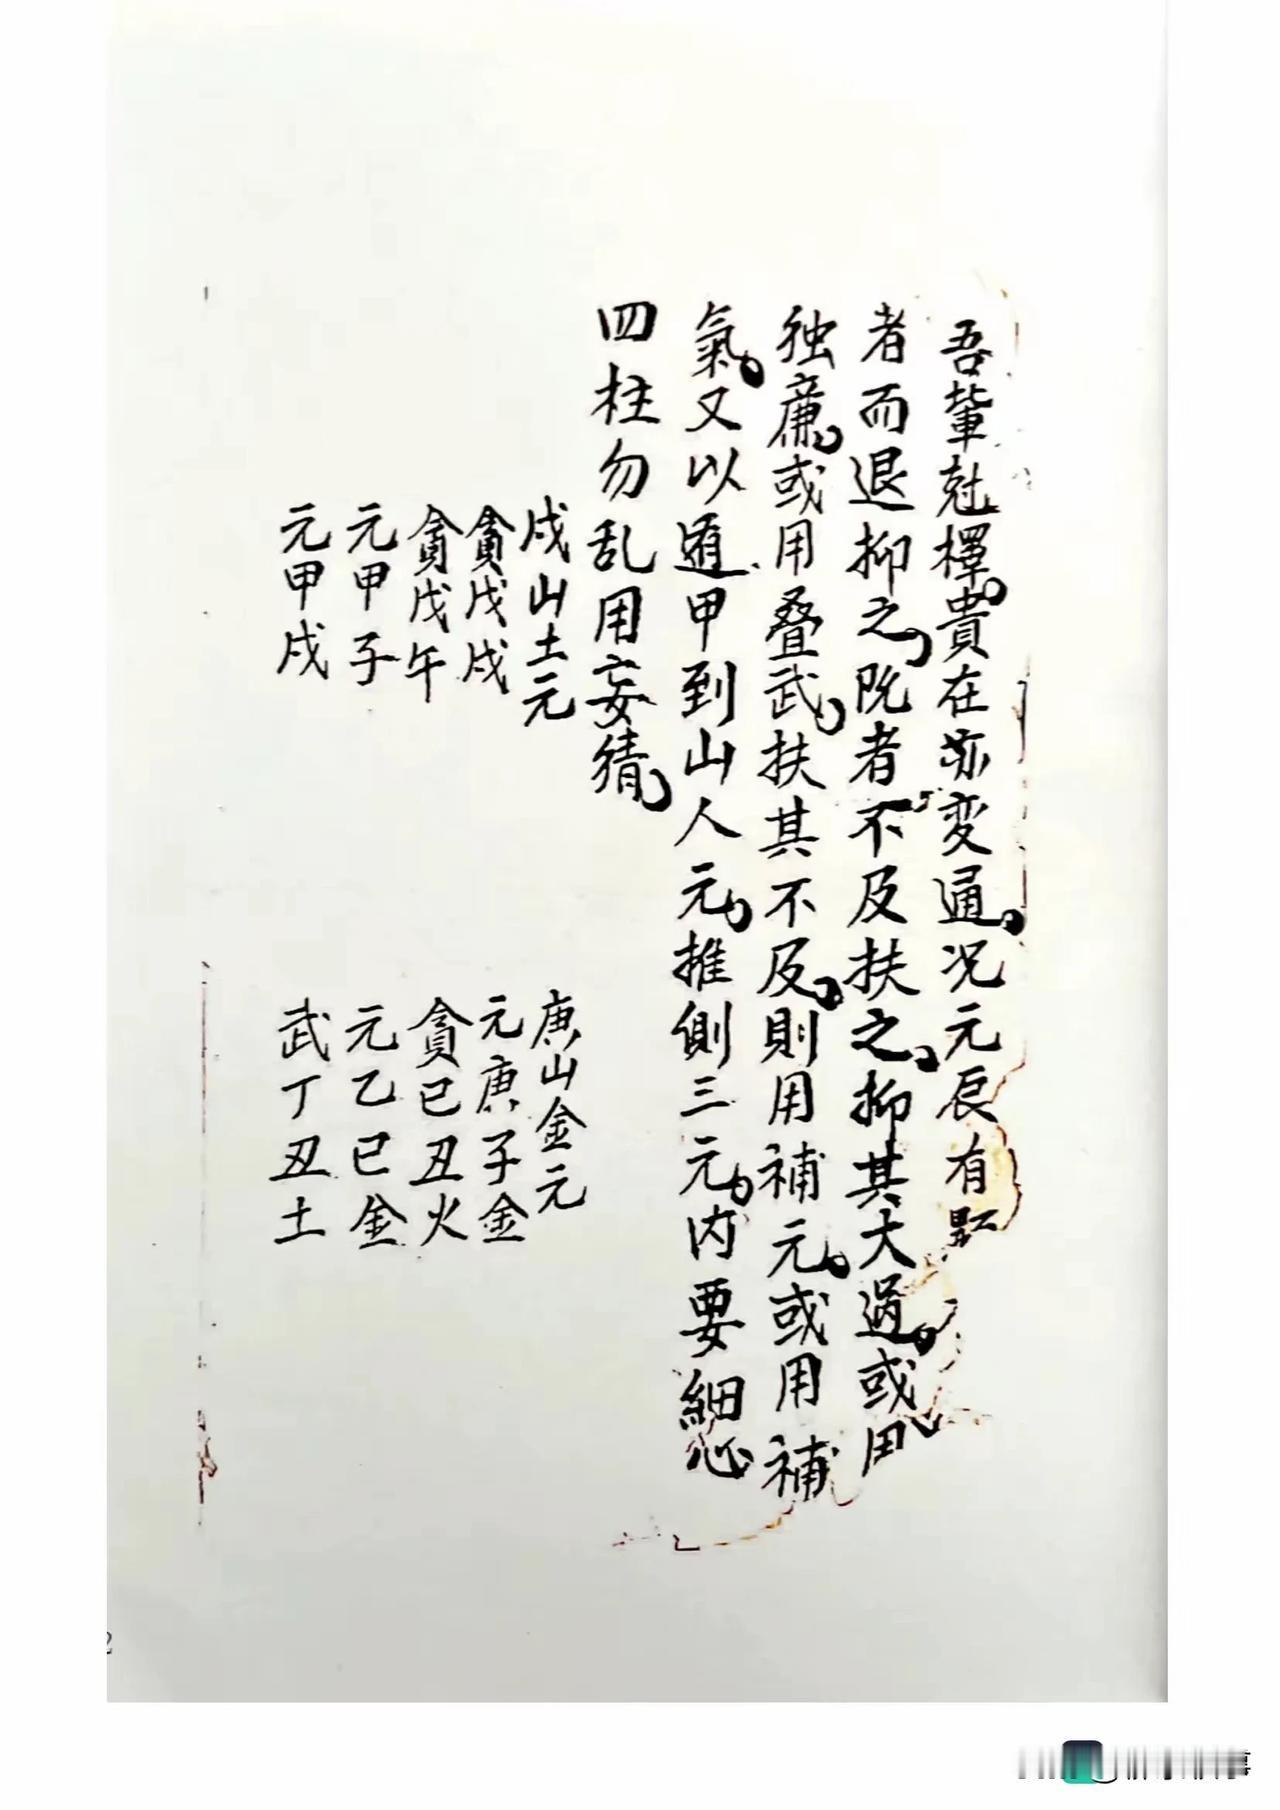 吾輩尅擇。貴在亦変通。况元辰有
者而退抑之，既者不及扶之。抑其大過。或用
独廉，或用叠武，扶其不及。則用補元。或用補
氣。又以遁甲到山人元。推側三元。内要細心
四柱勿乱用妄猜，
戌山土元
貪戊戌
貪戊午
元甲子
元甲戌
庚山金元
元庚子金
貪己丑火
元乙巳金
武丁丑土
2